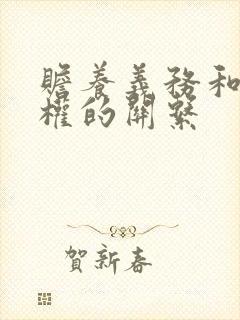 贍養義務和
權的關繫
賀新春